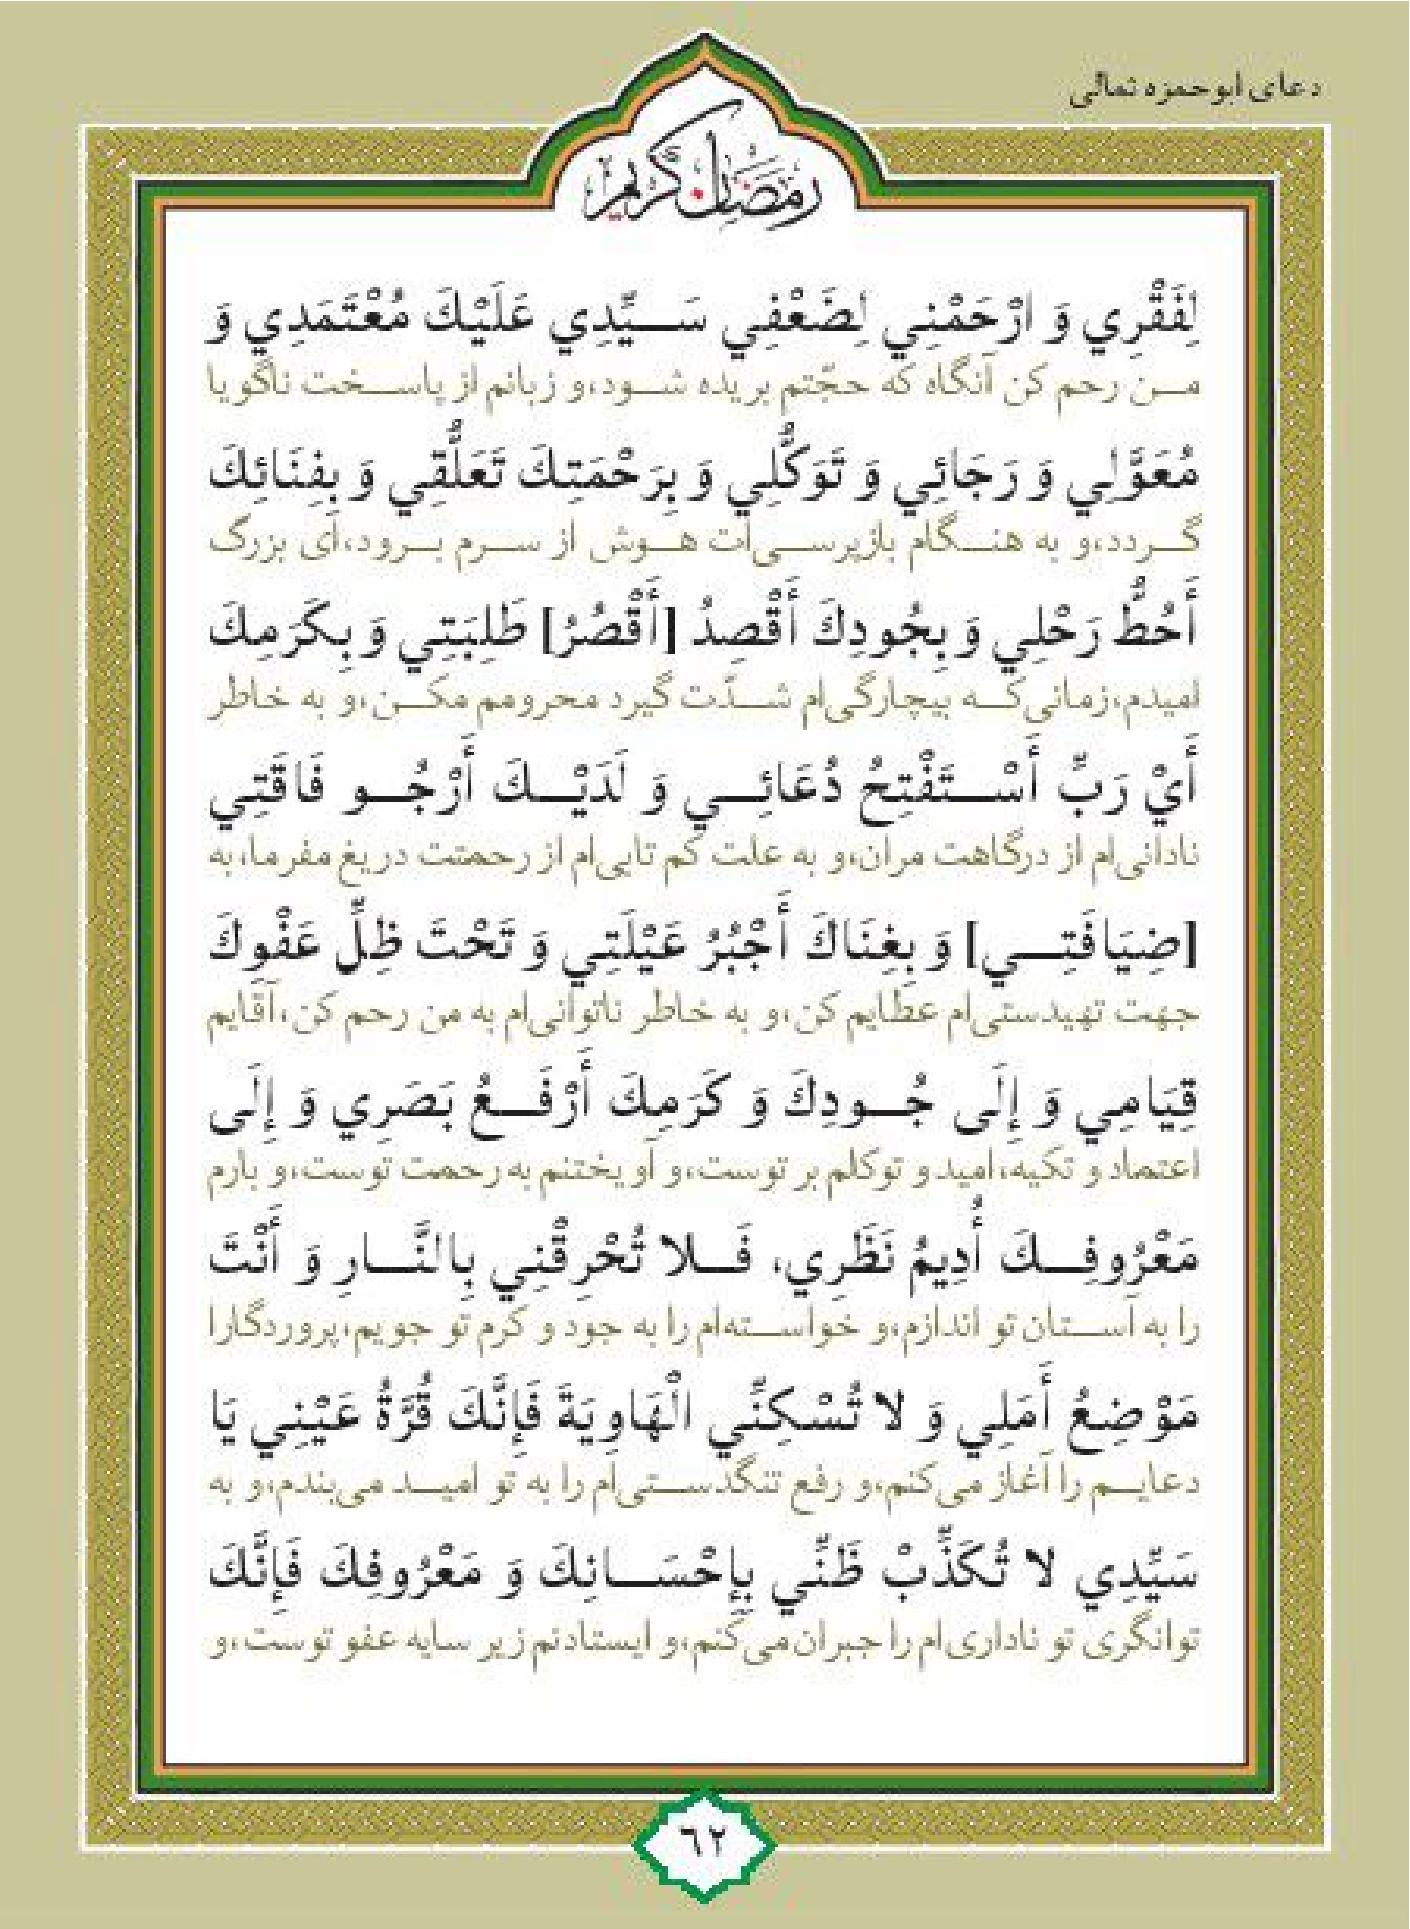 دعای ابوحمزه ثمالی
رمضان کریم
لِفَقْرِي وَ ارْحَمْنِي لِضَعْفِي سَـــيِّدِي عَلَيْكَ مُعْتَمَدِي وَ
مـن رحم کن آنگاه که حجّتم بریده شـود،و زبانم از پاسـخت ناگویا
مُعَوَّلِي وَ رَجَائِي وَ تَوَكُّلِي وَ بِرَحْمَتِكَ تَعَلُّقِي وَ بِفِنَائِكَ
گـردد،و به هنـگام بازپرسـی‌ات هـوش از سـرم بـرود،ای بزرگ
أَحُطُّ رَحْلِي وَ بِجُودِكَ أَقْصِدُ [أَقْصُرُ] طَلِبَتِي وَ بِكَرَمِكَ
امیدم،زمانی‌کـه بیچارگی‌ام شـدّت گیرد محرومم مکـن،و به خاطر
أَيْ رَبِّ أَسْـتَفْتِحُ دُعَائِـي وَ لَدَيْـكَ أَرْجُـو فَاقَتِي
نادانی‌ام از درگاهت مران،و به علت کم تابی‌ام از رحمتت دریغ مفرما،به
[ضِيَافَتِـي] وَ بِغِنَاكَ أَجْبُرُ عَيْلَتِي وَ تَحْتَ ظِلِّ عَفْوِكَ
جهت تهیدستی‌ام عطایم کن،و به خاطر ناتوانی‌ام به من رحم کن،آقایم
قِيَامِي وَ إِلَى جُـودِكَ وَ كَرَمِكَ أَرْفَـعُ بَصَرِي وَ إِلَى
اعتماد و تکیه،امید و توکلم بر توست،و آویختنم به رحمت توست،و بارم
مَعْرُوفِـكَ أُدِيمُ نَظَرِي، فَـلا تُحْرِقْنِي بِالنَّـارِ وَ أَنْتَ
را به آسـتان تو اندازم،و خواسـته‌ام را به جود و کرم تو جویم،پروردگارا
مَوْضِعُ أَمَلِي وَ لا تُسْكِنِّي الْهَاوِيَةَ فَإِنَّكَ قُرَّةُ عَيْنِي يَا
دعایـم را آغاز می‌کنم،و رفع تنگدسـتی‌ام را به تو امیـد می‌بندم،و به
سَيِّدِي لا تُكَذِّبْ ظَنِّي بِإِحْسَـانِكَ وَ مَعْرُوفِكَ فَإِنَّكَ
توانگری تو ناداری‌ام را جبران می‌کنم،و ایستادنم زیر سایه عفو توست،و
٦٢